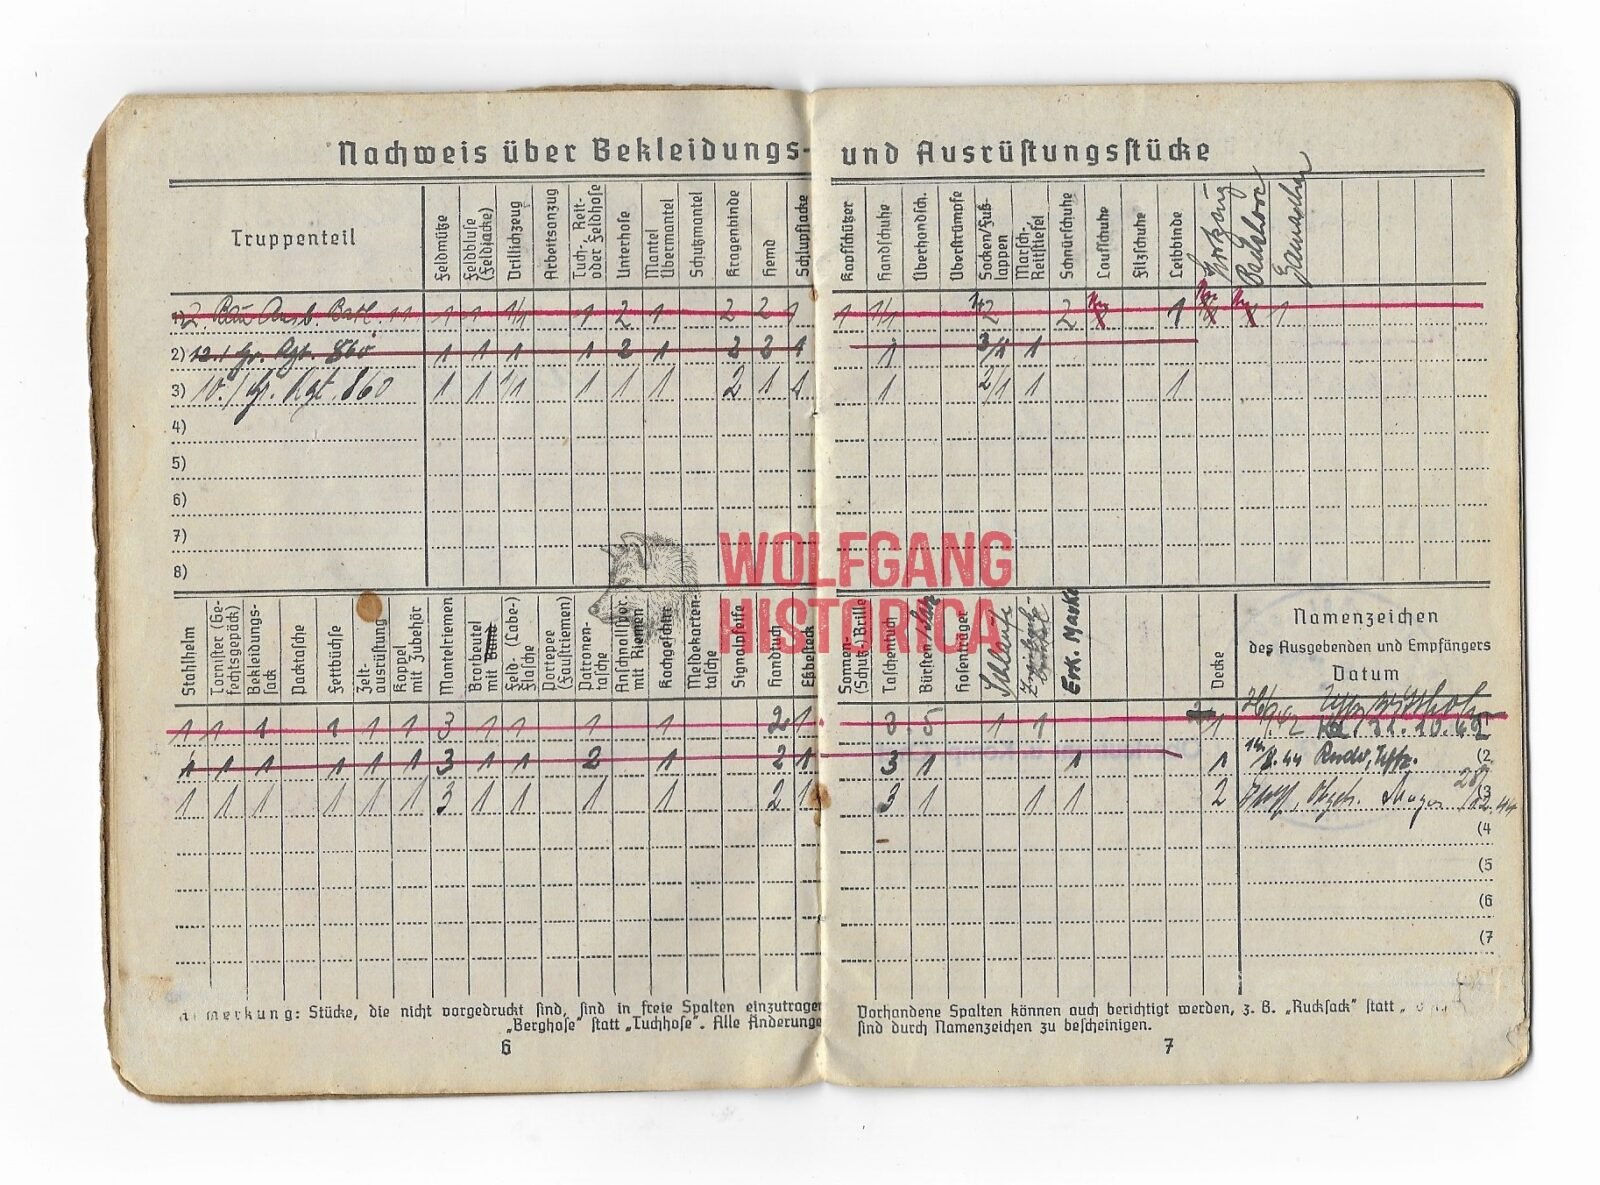 Nachweis über Bekleidungs- und Ausrüstungsstücke
Truppenteil
Feldmütze
Feldbluse (Feldjacke)
Drillichzeug
Arbeitsanzug
Tuch-, Reit- oder Feldhose
Unterhose
Mantel Übermantel
Schutzmantel
Kragenbinde
Hemd
Schlupfjacke
Kopfschützer
Handschuhe
Überhandsch.
Überstrümpfe
Socken/Fuß-lappen
Marsch-, Reitstiefel
Schnürschuhe
Laufschuhe
Filzschuhe
Leibbinde
1) 2. Bau Ausb. Batl. 11 1 1 1/1 1 2 1 2 2 1 1 1/1 2 2 1 1
2) 12./ Gr. Rgt. 860 1 1 1 1 2 1 2 2 1 1 3/1 1
3) 10./ Gr. Rgt. 860 1 1 1/1 1 1 1 2 1 1 1 2/1 1 1
4)
5)
6)
7)
8)
WOLFGANG
HISTORICA
Stahlhelm
Tornister (Ge-fechtsgepäck)
Bekleidungs-sack
Packtasche
Fettbüchse
Zelt-ausrüstung
Koppel mit Zubehör
Mantelriemen
Brotbeutel mit Band
Feld- (Labe-) flasche
Portepee (Faustriemen)
Patronen-tasche
Anschnallspor. mit Riemen
Kochgeschirr
Meldekarten-tasche
Signalpfeife
Handtuch
Eßbesteck
Sonnen- (Schutz) Brille
Taschentuch
Bürsten/Satz
Hosenträger
Erk. Marke
Decke
Namenzeichen
des Ausgebenden und Empfängers
Datum
1 1 1 1 1 1 3 1 1 1 1 2 1 3 5 1 1 1 31.10.42
1 1 1 1 1 1 3 1 1 2 1 2 1 3 1 1 1 8.44 Uffz. (2
1 1 1 1 1 1 3 1 1 1 1 2 1 3 1 1 1 2 (3
(4
(5
(6
(7
Anmerkung: Stücke, die nicht vorgedruckt sind, sind in freie Spalten einzutragen Vorhandene Spalten können auch berichtigt werden, z. B. „Rucksack" statt
„Berghose" statt „Tuchhose". Alle Änderungen sind durch Namenzeichen zu bescheinigen.
6
7